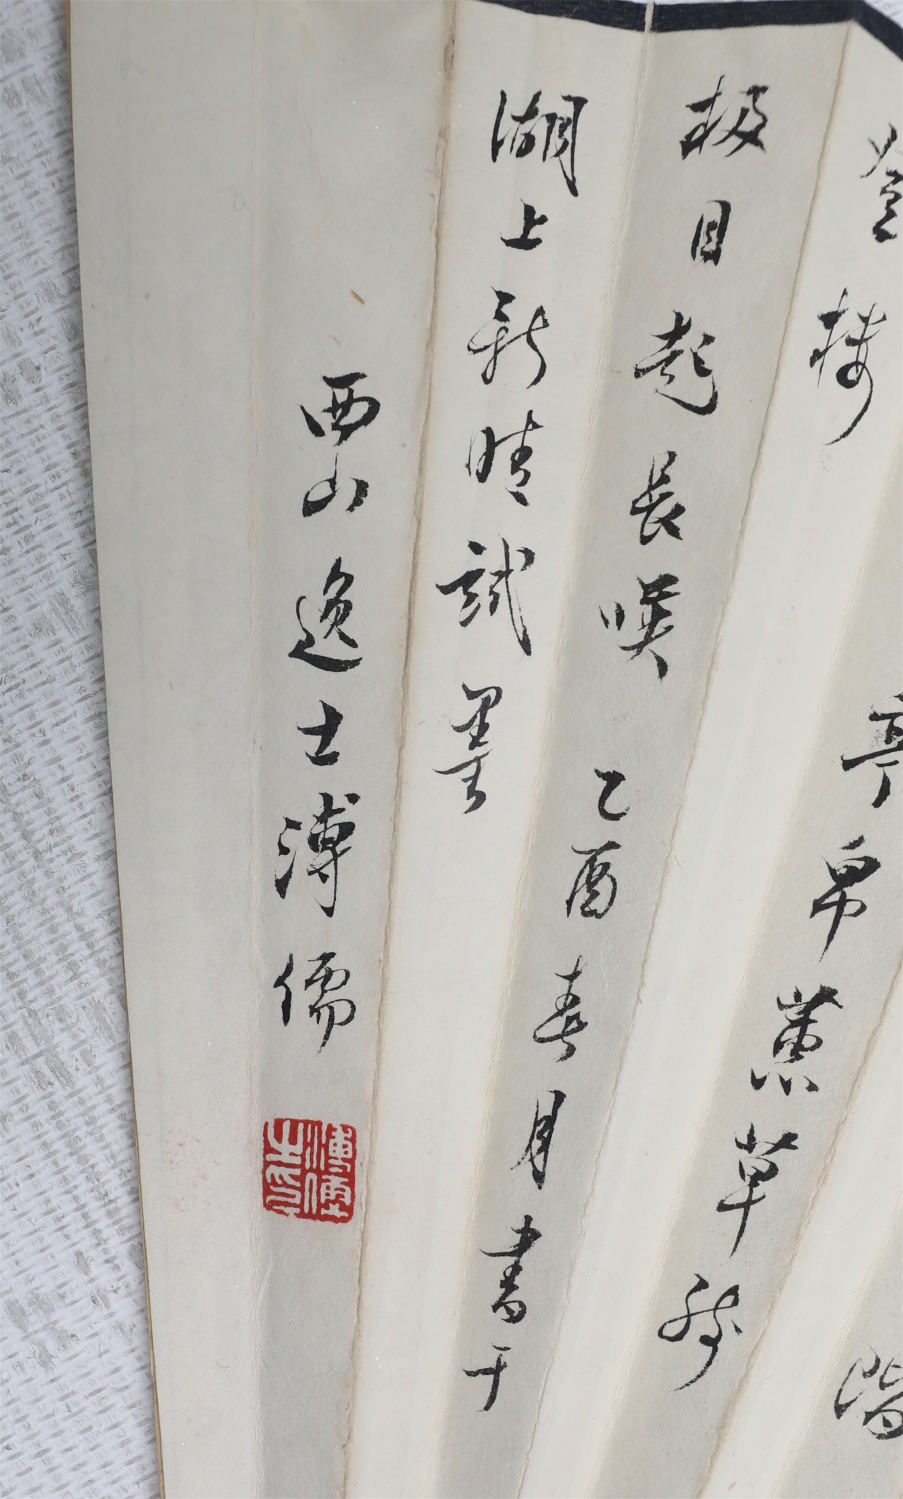 階
亭皋蕙草
登樓
極目起長嘆 乙酉春月書于
湖上新晴試墨
西山逸士溥儒
溥儒之印